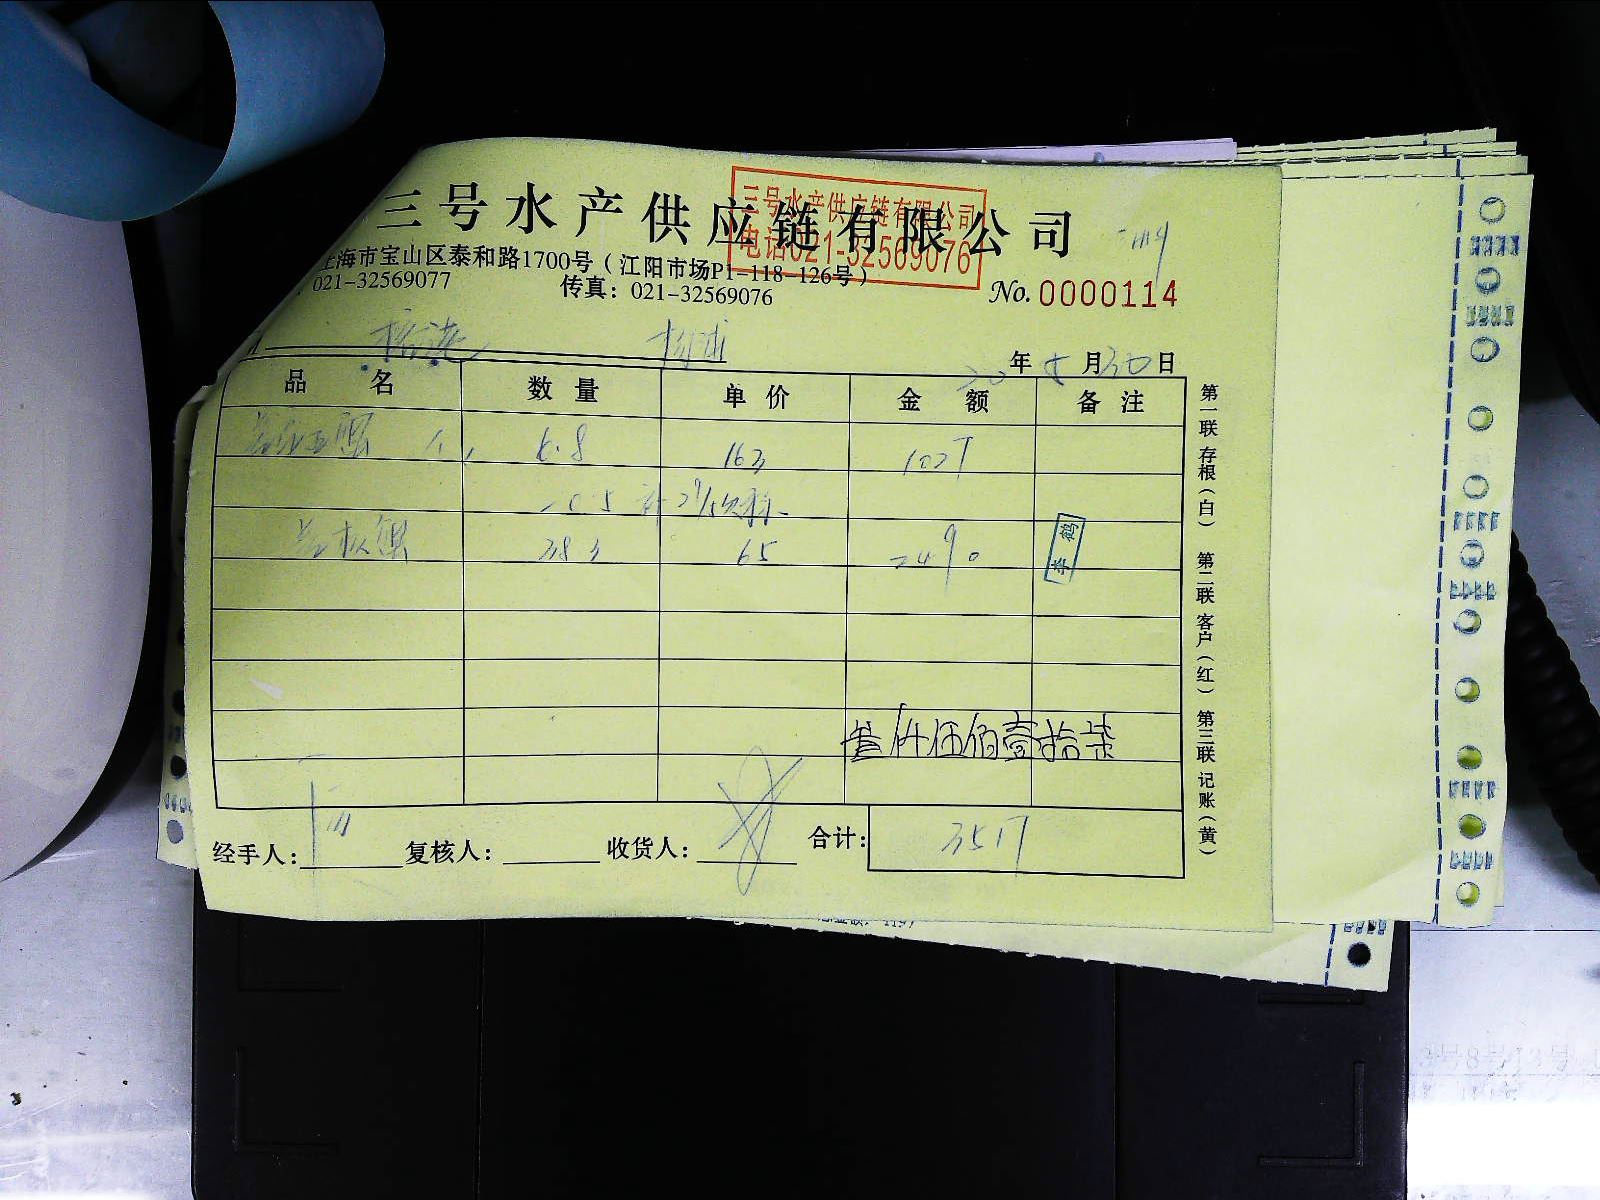 三号水产供应链有限公司
三号水产供应链有限公司
电话021-32569076
上海市宝山区泰和路1700号（江阳市场P1-118-126号）
021-32569077 传真：021-32569076
No. 0000114
杨浦
20年8月30日
品名 数量 单价 金额 备注
6.8 163 1027
-0.5 补
38.3 65 2490
李鹤
叁仟伍佰壹拾柒
经手人： 复核人： 收货人： 合计： 3517
第一联 存根（白） 第二联 客户（红） 第三联 记账（黄）
总金额：1197